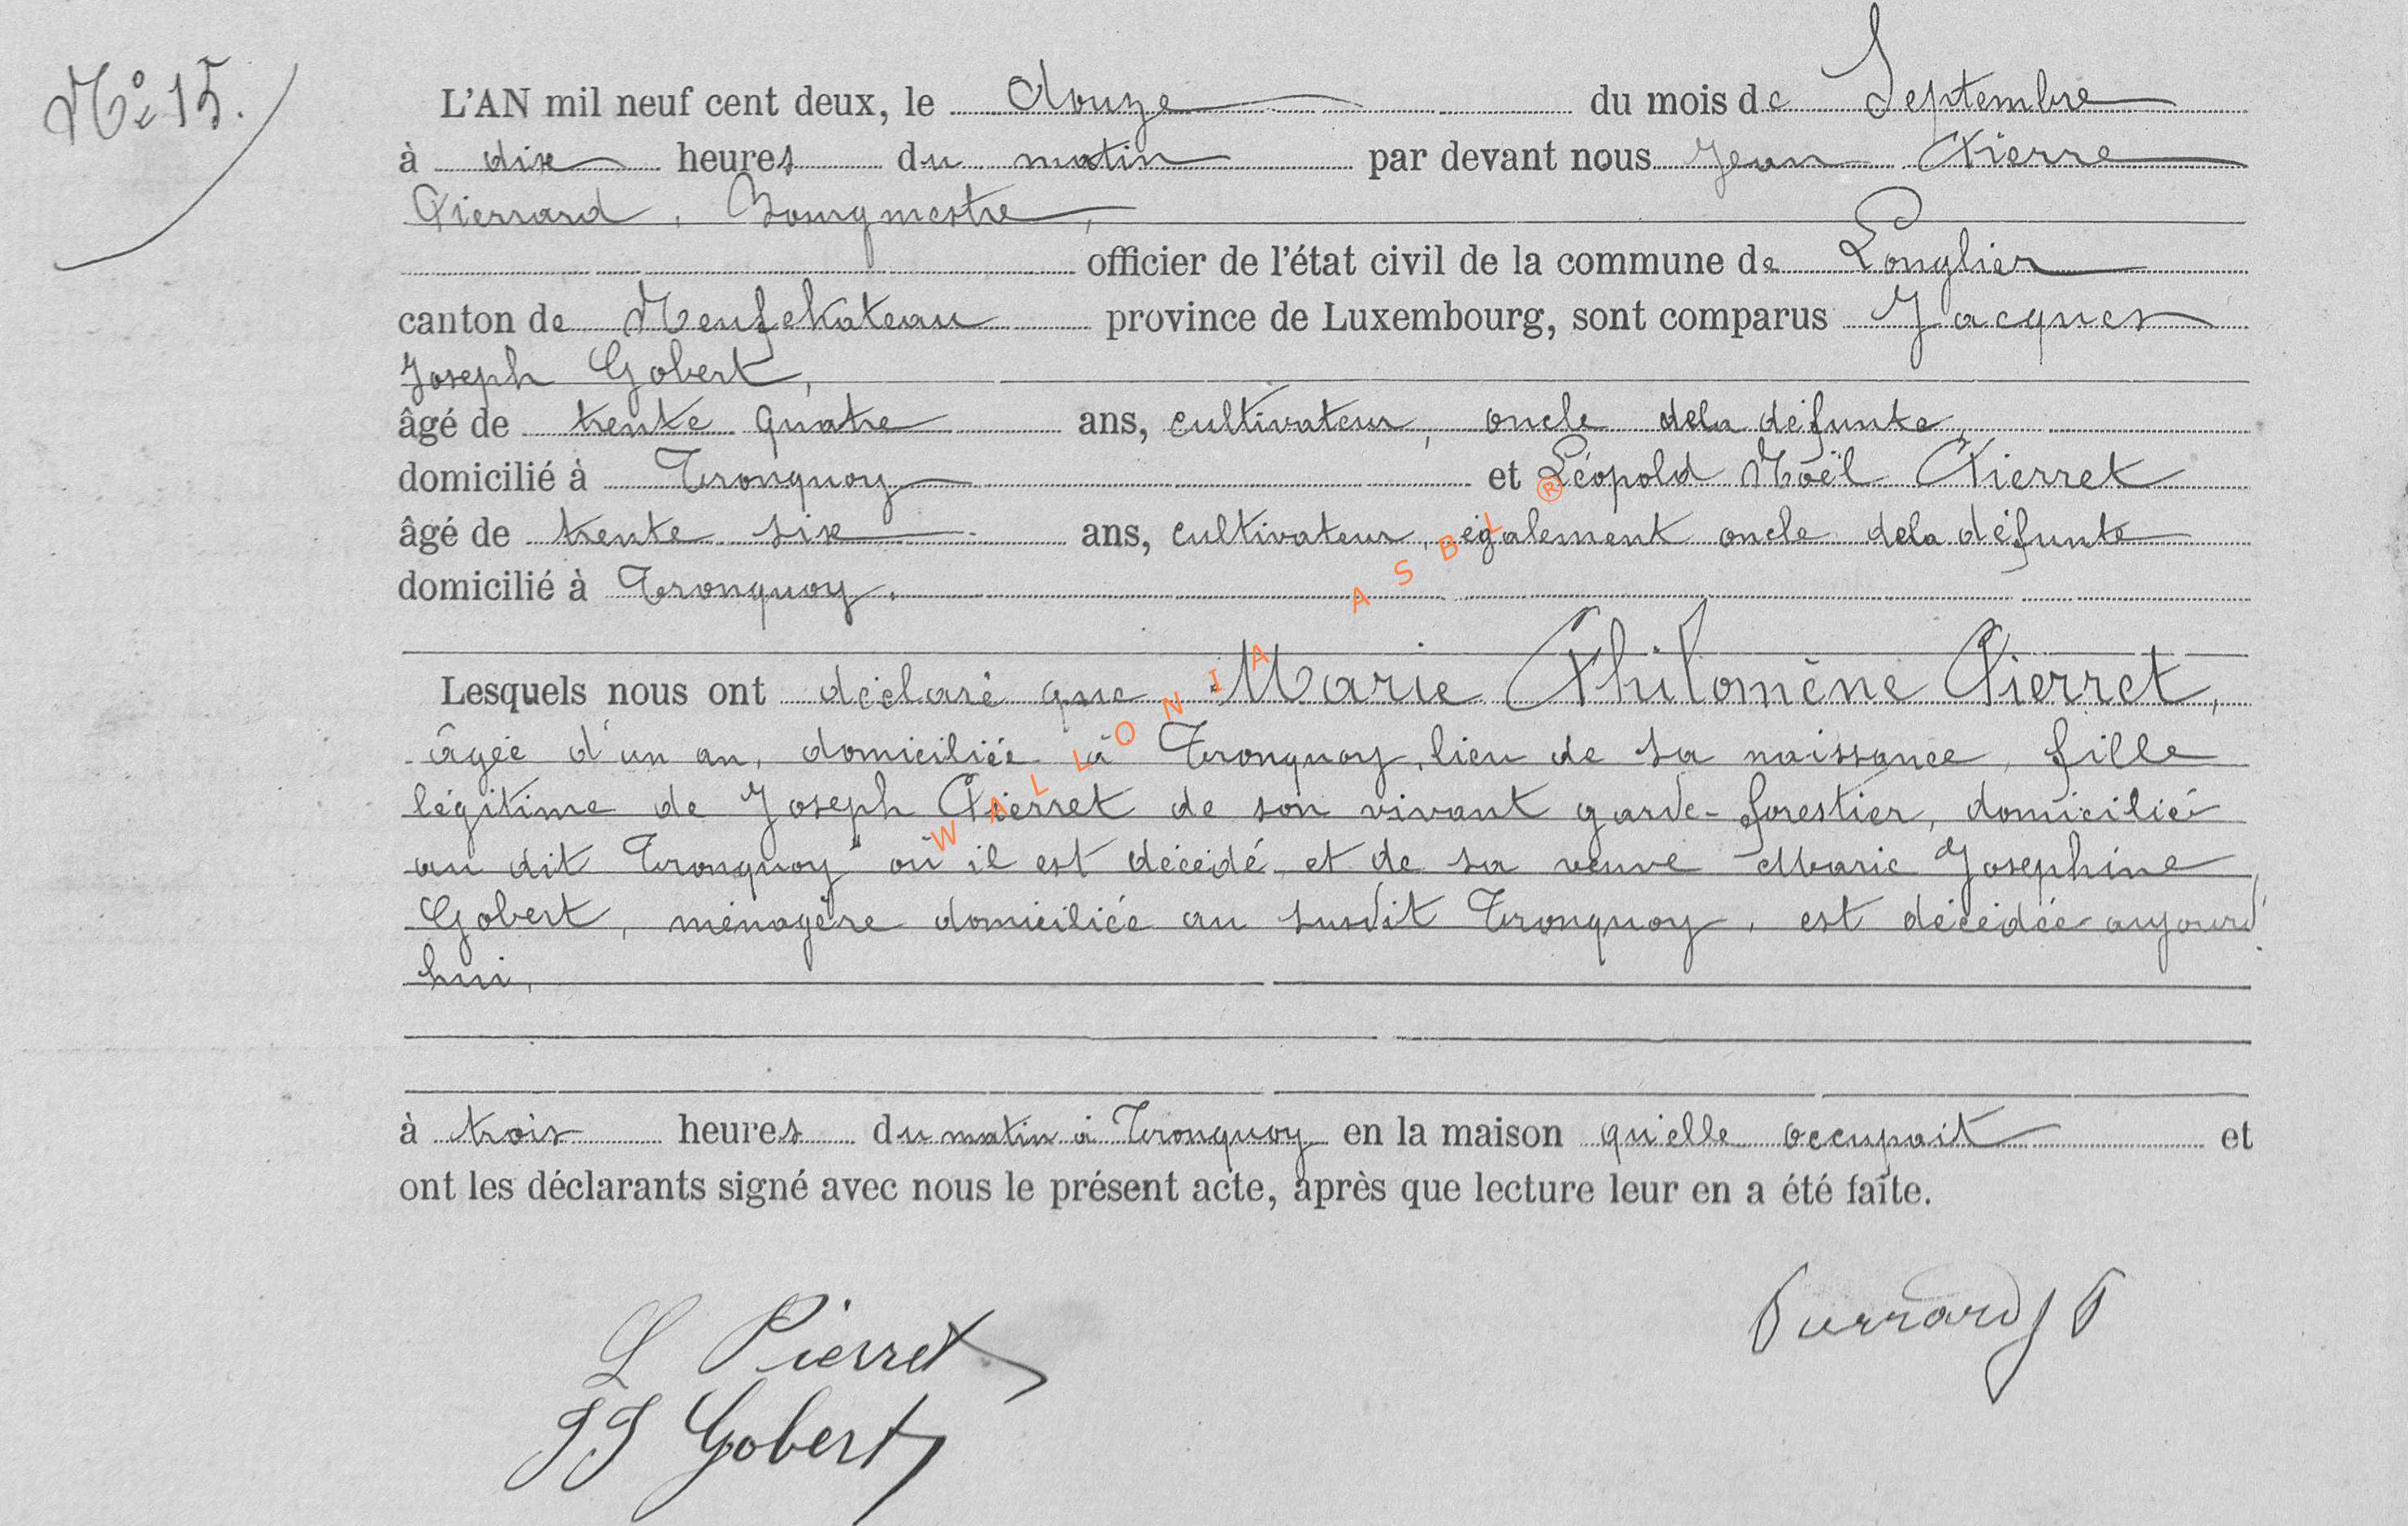 N° 15.
L'AN mil neuf cent deux, le douze du mois de Septembre
à dix heures du matin par devant nous Jean Pierre
Pierrard, Bourgmestre,
officier de l'état civil de la commune de Longlier
canton de Neufchateau province de Luxembourg, sont comparus Jacques
Joseph Gobert,
âgé de trente quatre ans, cultivateur, oncle dela défunte,
domicilié à Tronquoy et Léopold Noël Pierret
âgé de trente six ans, cultivateur, également oncle dela défunte
domicilié à Tronquoy.
Lesquels nous ont déclaré que Marie Philomène Pierret,
âgée d'un an, domiciliée à Tronquoy, lieu de sa naissance, fille
légitime de Joseph Pierret de son vivant garde-forestier, domicilié
au dit Tronquoy où il est décédé, et de sa veuve Marie Josephine
Gobert, ménagère domiciliée au susdit Tronquoy, est décédée aujourd'
hui,
à trois heures du matin à Tronquoy en la maison qu'elle occupait et
ont les déclarants signé avec nous le présent acte, après que lecture leur en a été faite.
L Pierret
JJ Gobert
Pierrard J P
WALLONIA ASBL ®